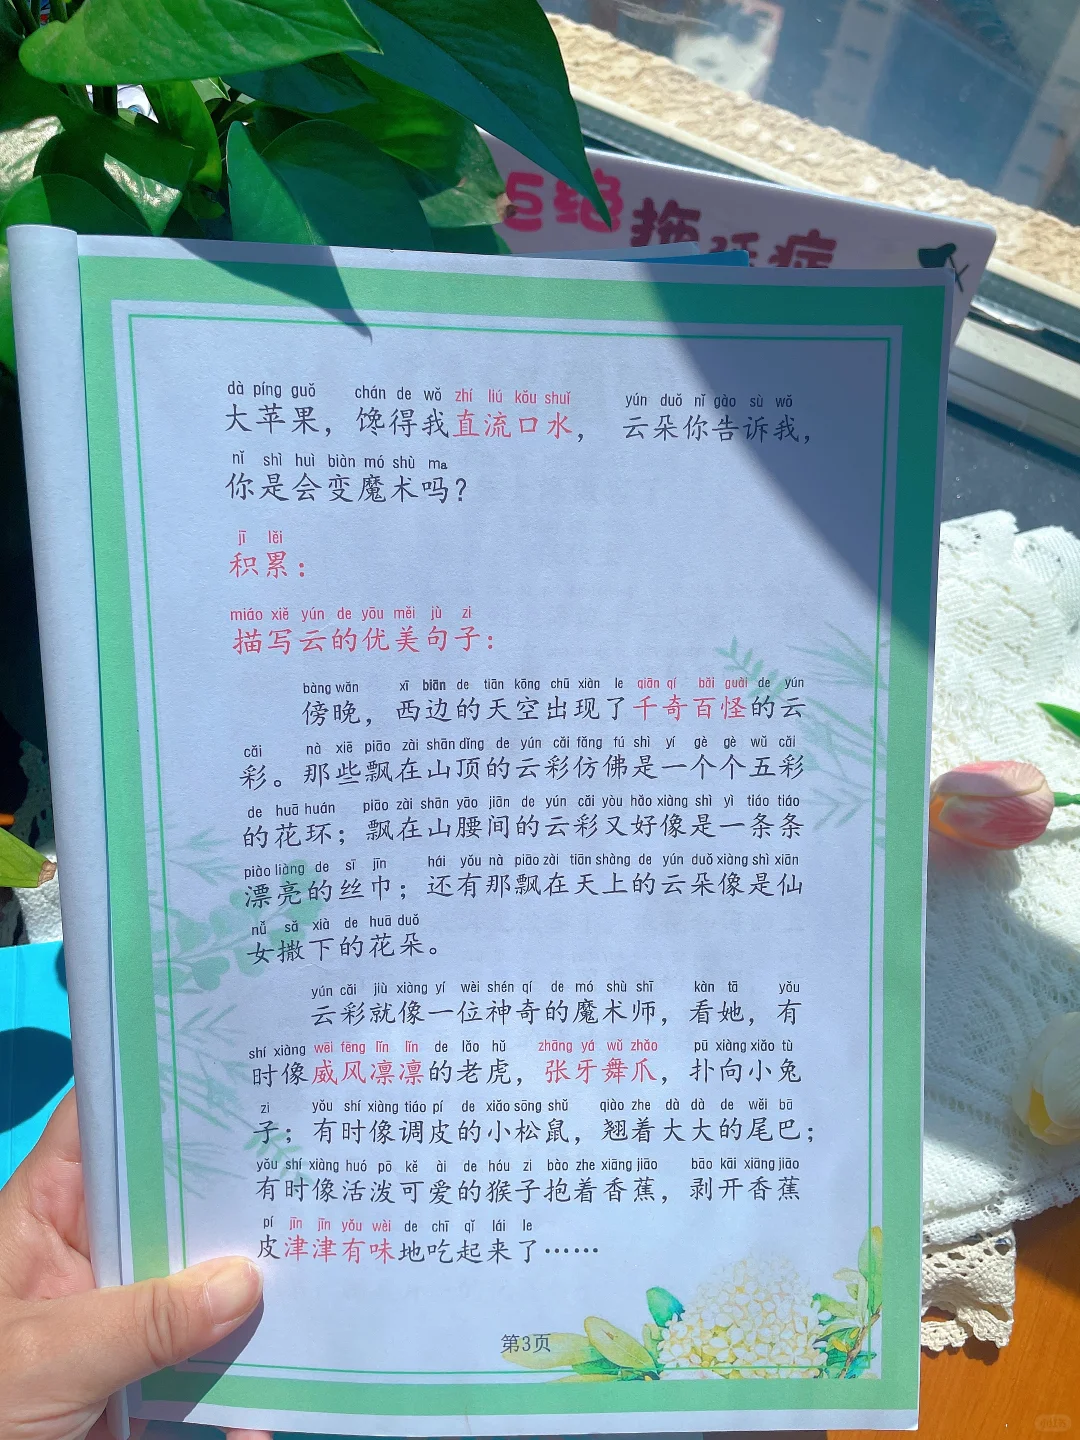 巨绝
拖延症
dà píng guǒ chán de wǒ zhí liú kǒu shuǐ yún duǒ nǐ gào sù wǒ
大苹果，馋得我直流口水，云朵你告诉我，
nǐ shì huì biàn mó shù ma
你是会变魔术吗？
jī lěi
积累：
miáo xiě yún de yōu měi jù zi
描写云的优美句子：
bàng wǎn xī biān de tiān kōng chū xiàn le qiān qí bǎi guài de yún
傍晚，西边的天空出现了千奇百怪的云
cǎi nà xiē piāo zài shān dǐng de yún cǎi fǎng fú shì yí gè gè wǔ cǎi
彩。那些飘在山顶的云彩仿佛是一个个五彩
de huā huán piāo zài shān yāo jiān de yún cǎi yòu hǎo xiàng shì yì tiáo tiáo
的花环；飘在山腰间的云彩又好像是一条条
piào liàng de sī jīn hái yǒu nà piāo zài tiān shàng de yún duǒ xiàng shì xiān
漂亮的丝巾；还有那飘在天上的云朵像是仙
nǚ sǎ xià de huā duǒ
女撒下的花朵。
yún cǎi jiù xiàng yí wèi shén qí de mó shù shī kàn tā yǒu
云彩就像一位神奇的魔术师，看她，有
shí xiàng wēi fēng lǐn lǐn de lǎo hǔ zhāng yá wǔ zhǎo pū xiàng xiǎo tù
时像威风凛凛的老虎，张牙舞爪，扑向小兔
zi yǒu shí xiàng tiáo pí de xiǎo sōng shǔ qiào zhe dà dà de wěi bā
子；有时像调皮的小松鼠，翘着大大的尾巴；
yǒu shí xiàng huó pō kě ài de hóu zi bào zhe xiāng jiāo bāo kāi xiāng jiāo
有时像活泼可爱的猴子抱着香蕉，剥开香蕉
pí jīn jīn yǒu wèi de chī qǐ lái le
皮津津有味地吃起来了……
第3页